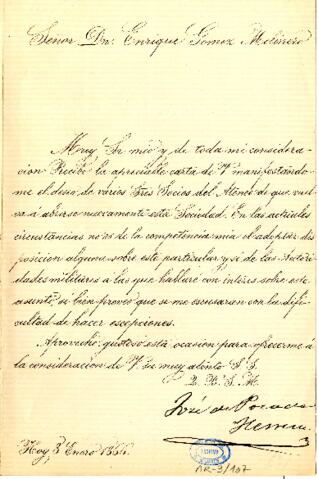 Señor Dn. Enrique Gomez Molinero
Muy Sr mio y de toda mi considera-
cion Recibí la apreciable carta de V manifestándo-
me el deseo de varios Sres Socios del Ateneo de que vuel-
va á abrirse nuevamente esta Sociedad. En las actuales
circunstancias no es de la competencia mia el adoptar dis-
posicion alguna sobre este particular y si de las Autori-
dades militares á las que hablaré con interés sobre este
asunto, si bien preveo que se me escusaran con la difi-
cultad de hacer escepciones.
Aprovecho gustoso esta ocasion para ofrecerme á
la consideracion de V su muy atento S. S.
Q. B. S. M.
José de
Herrera
Hoy 3 Enero
AR-3/107